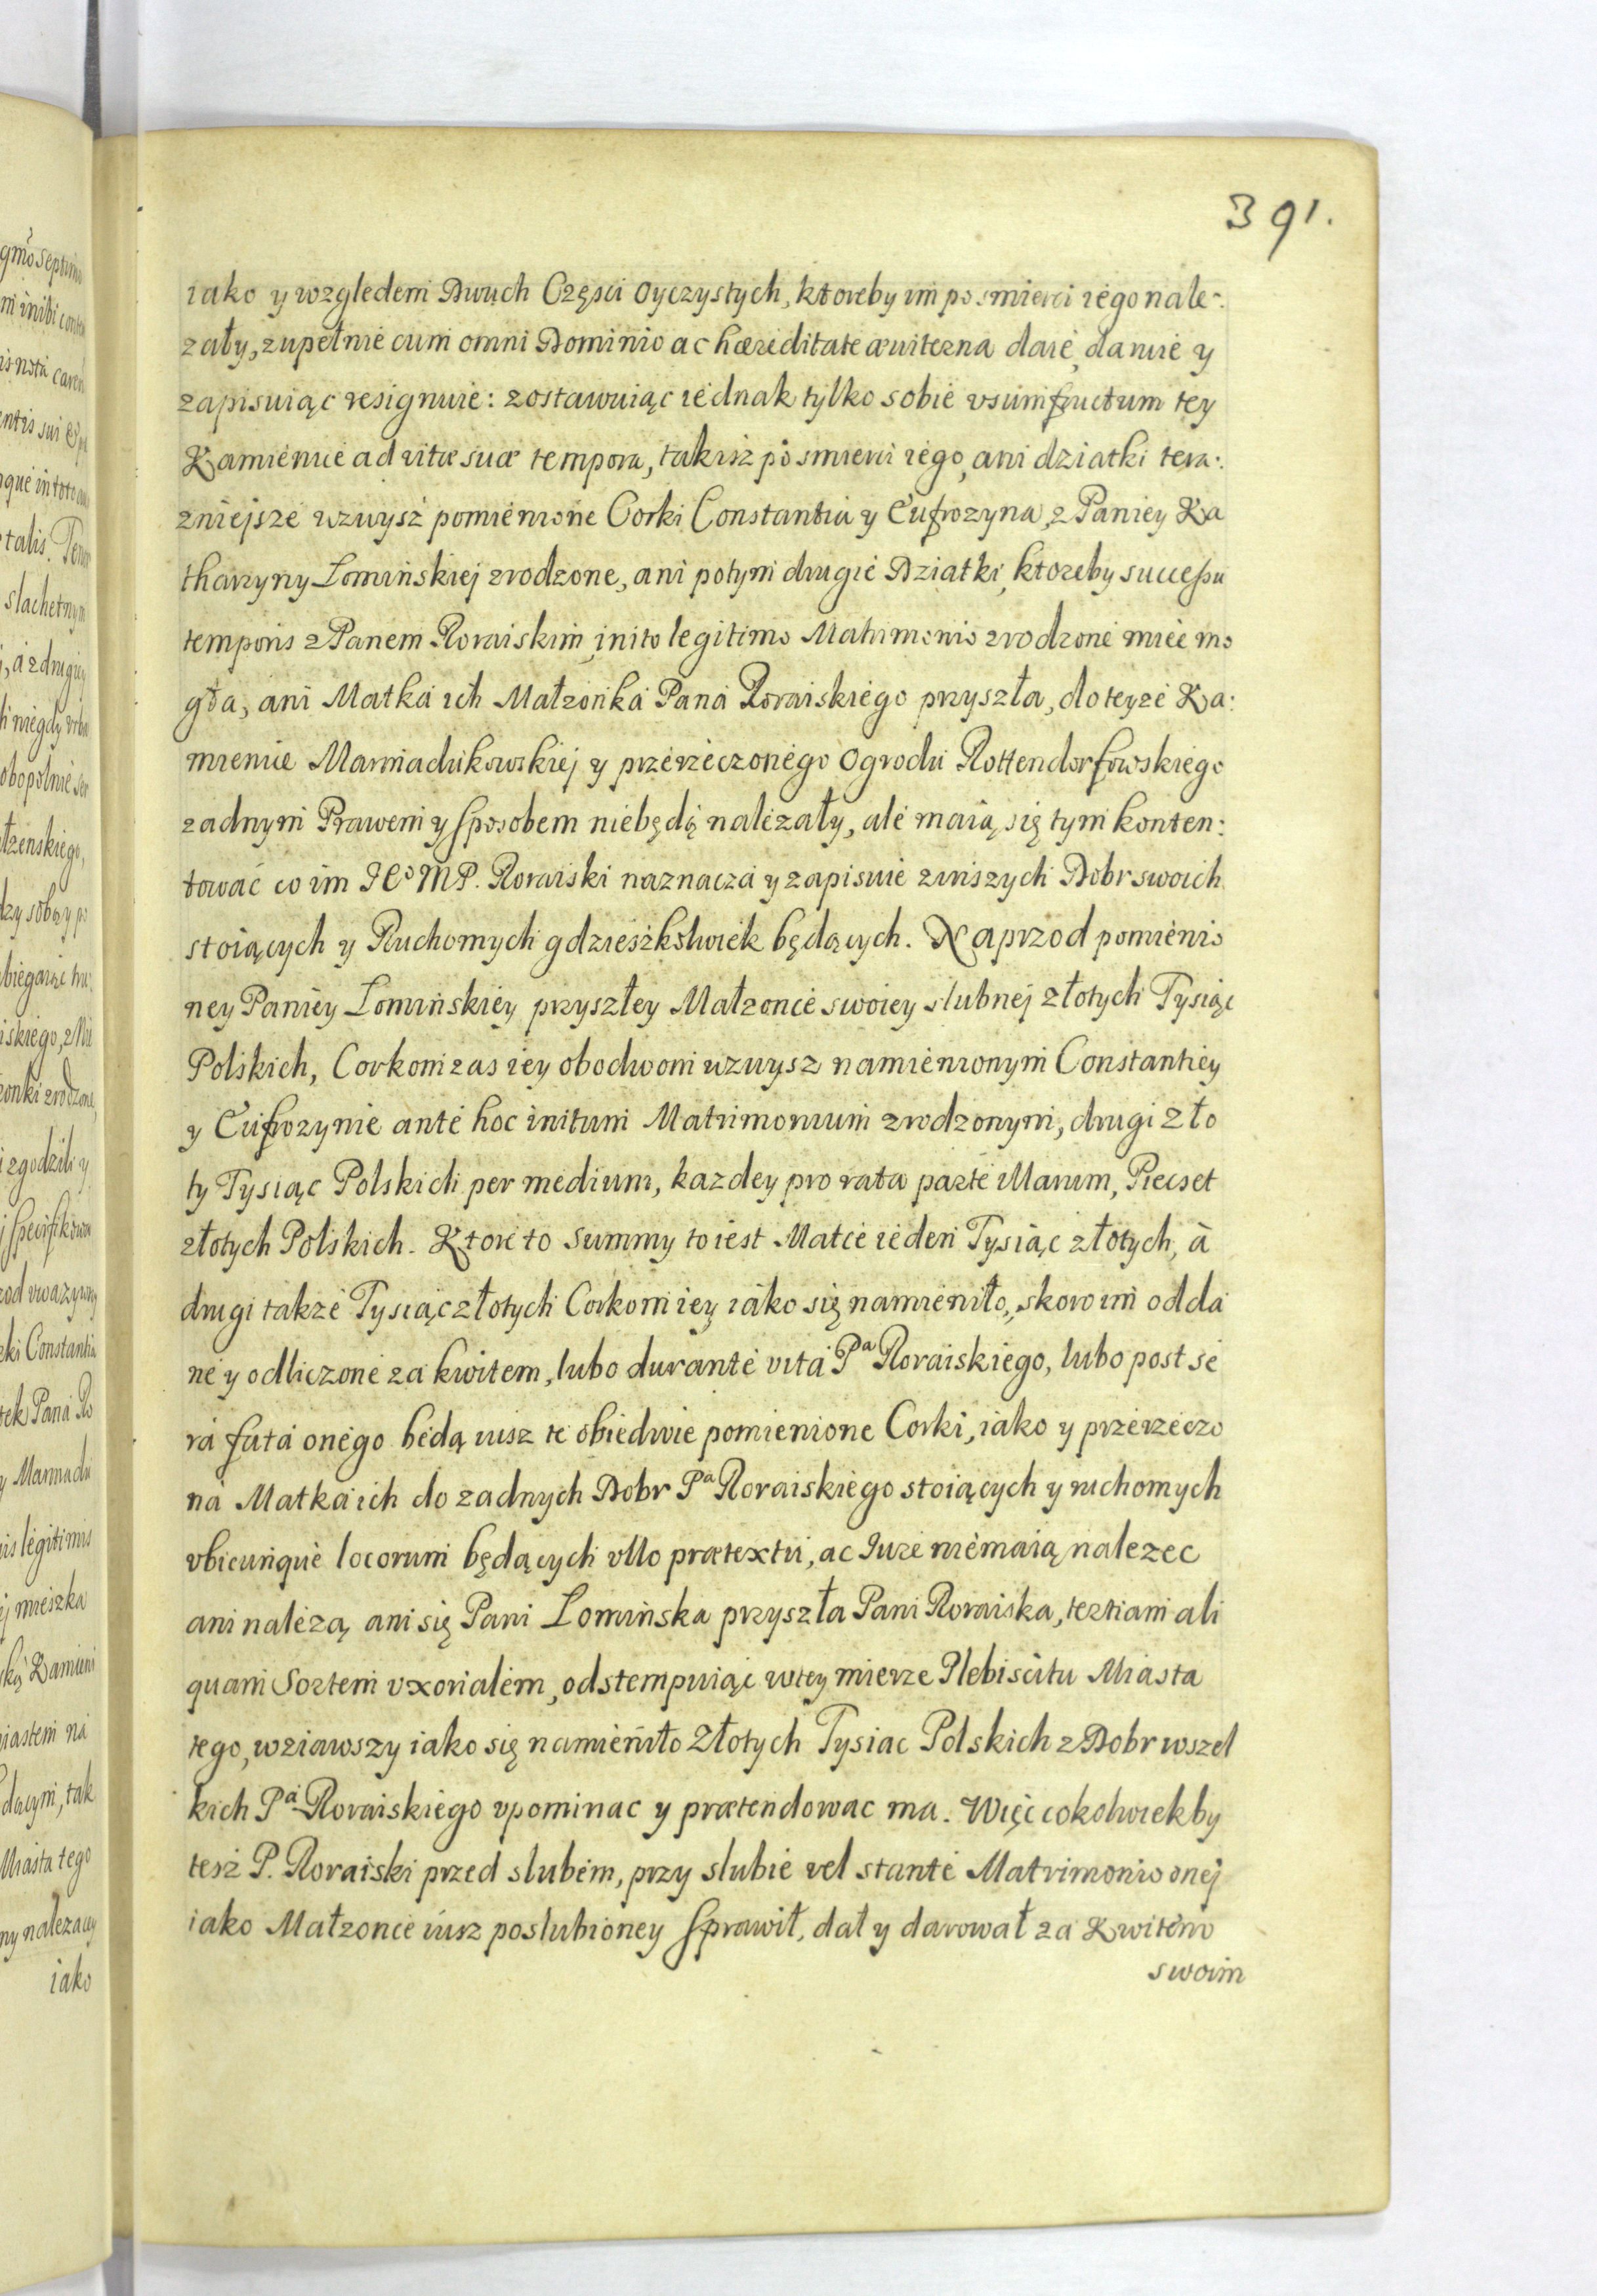 391.
iako y wzgledem Dwuch Częsci Oyczystych, ktoreby im po smierci iego nale-
zały, zupełnie cum omni Dominio ac hæreditate æuiterna daie, daruie y
zapisuiąc resignuie: zostawuiąc iednak tylko sobie vsumfructum tey
Kamienice ad vitæ suæ tempora, takisz po smierci iego, ani dziatki tera:
zniejsze wzwysz pomienione Corki Constantia y Eufrozyna, z Paniey Ka
tharzyny Lominskiej zrodzone, ani potym drugie Dziatki, ktoreby successu
temporis z Panem Roraiskim, inito legitimo Matrimonio zrodzone miec mo
gła, ani Matka ich Małzonka Pana Roraiskiego przyszła, do teyze Ka:
mienice Marmadukowskiej y przerzeczonego Ogrodu Rottendorfowskiego
zadnym Prawem y sposobem niebędą nalezały, ale maią się tym konten:
tować co im JEo MP. Roraiski naznacza y zapisuie z inszych Dobr swoich
stoiących y Ruchomych gdzieszkolwiek będących. Naprzod pomienio
ney Paniey Lominskiey przyszłey Małzonce swoiey slubnej złotych Tysiąc
Polskich, Corkom zas iey obodwom wzwysz namienionym Constantiey
y Eufrozynie ante hoc initum Matrimonium zrodzonym, drugi Zło
ty Tysiąc Polskich per medium, kazdey pro rata parte illarum, Piecset
złotych Polskich. Ktore to Summy to iest Matce ieden Tysiąc złotych, à
drugi takze Tysiąc złotych Corkom iey iako się namieniło, skoro im odda
ne y odliczone za kwitem, lubo durante vita Pa Roraiskiego, lubo post se
ra fata onego będą iusz te obiedwie pomienione Corki, iako y przerzeczo
na Matka ich do zadnych Dobr Pa Roraiskiego stoiących y ruchomych
vbicunque locorum będących vllo prætextu, ac Jure niemaią nalezec
ani nalezą, ani się Pani Lominska przyszła Pani Roraiska, tertiam ali
quam Sortem vxorialem, odstempuiąc w tey mierze Plebiscitu Miasta
tego, wziawszy iako się namieniło Złotych Tysiac Polskich z Dobr wszel
kich Pa Roraiskiego vpominac y prætendowac ma. Więc cokolwiekby
tesz P. Roraiski przed slubem, przy slubie vel stante Matrimonio onej
iako Małzonce iusz poslubioney sprawił, dał y darował za Kwitem
swoim
iako